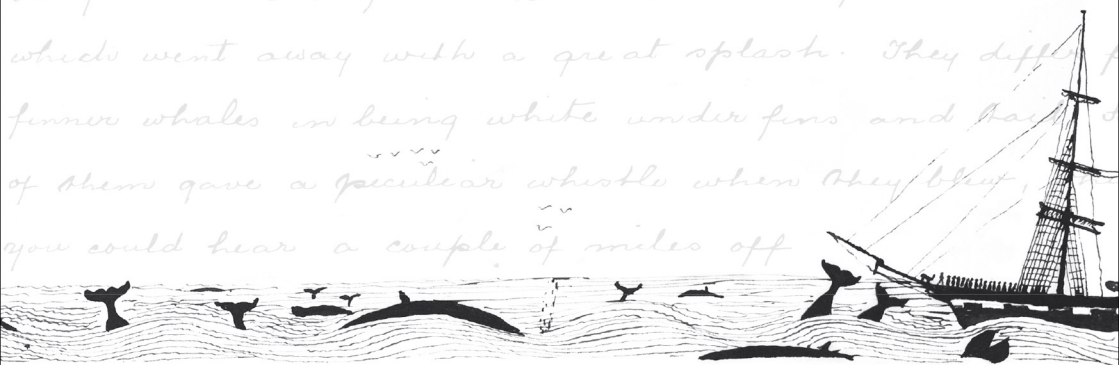 which went away with a great splash. They differ
finner whales in being white under fins and
of them gave a peculiar whistle when they blew,
you could hear a couple of miles off